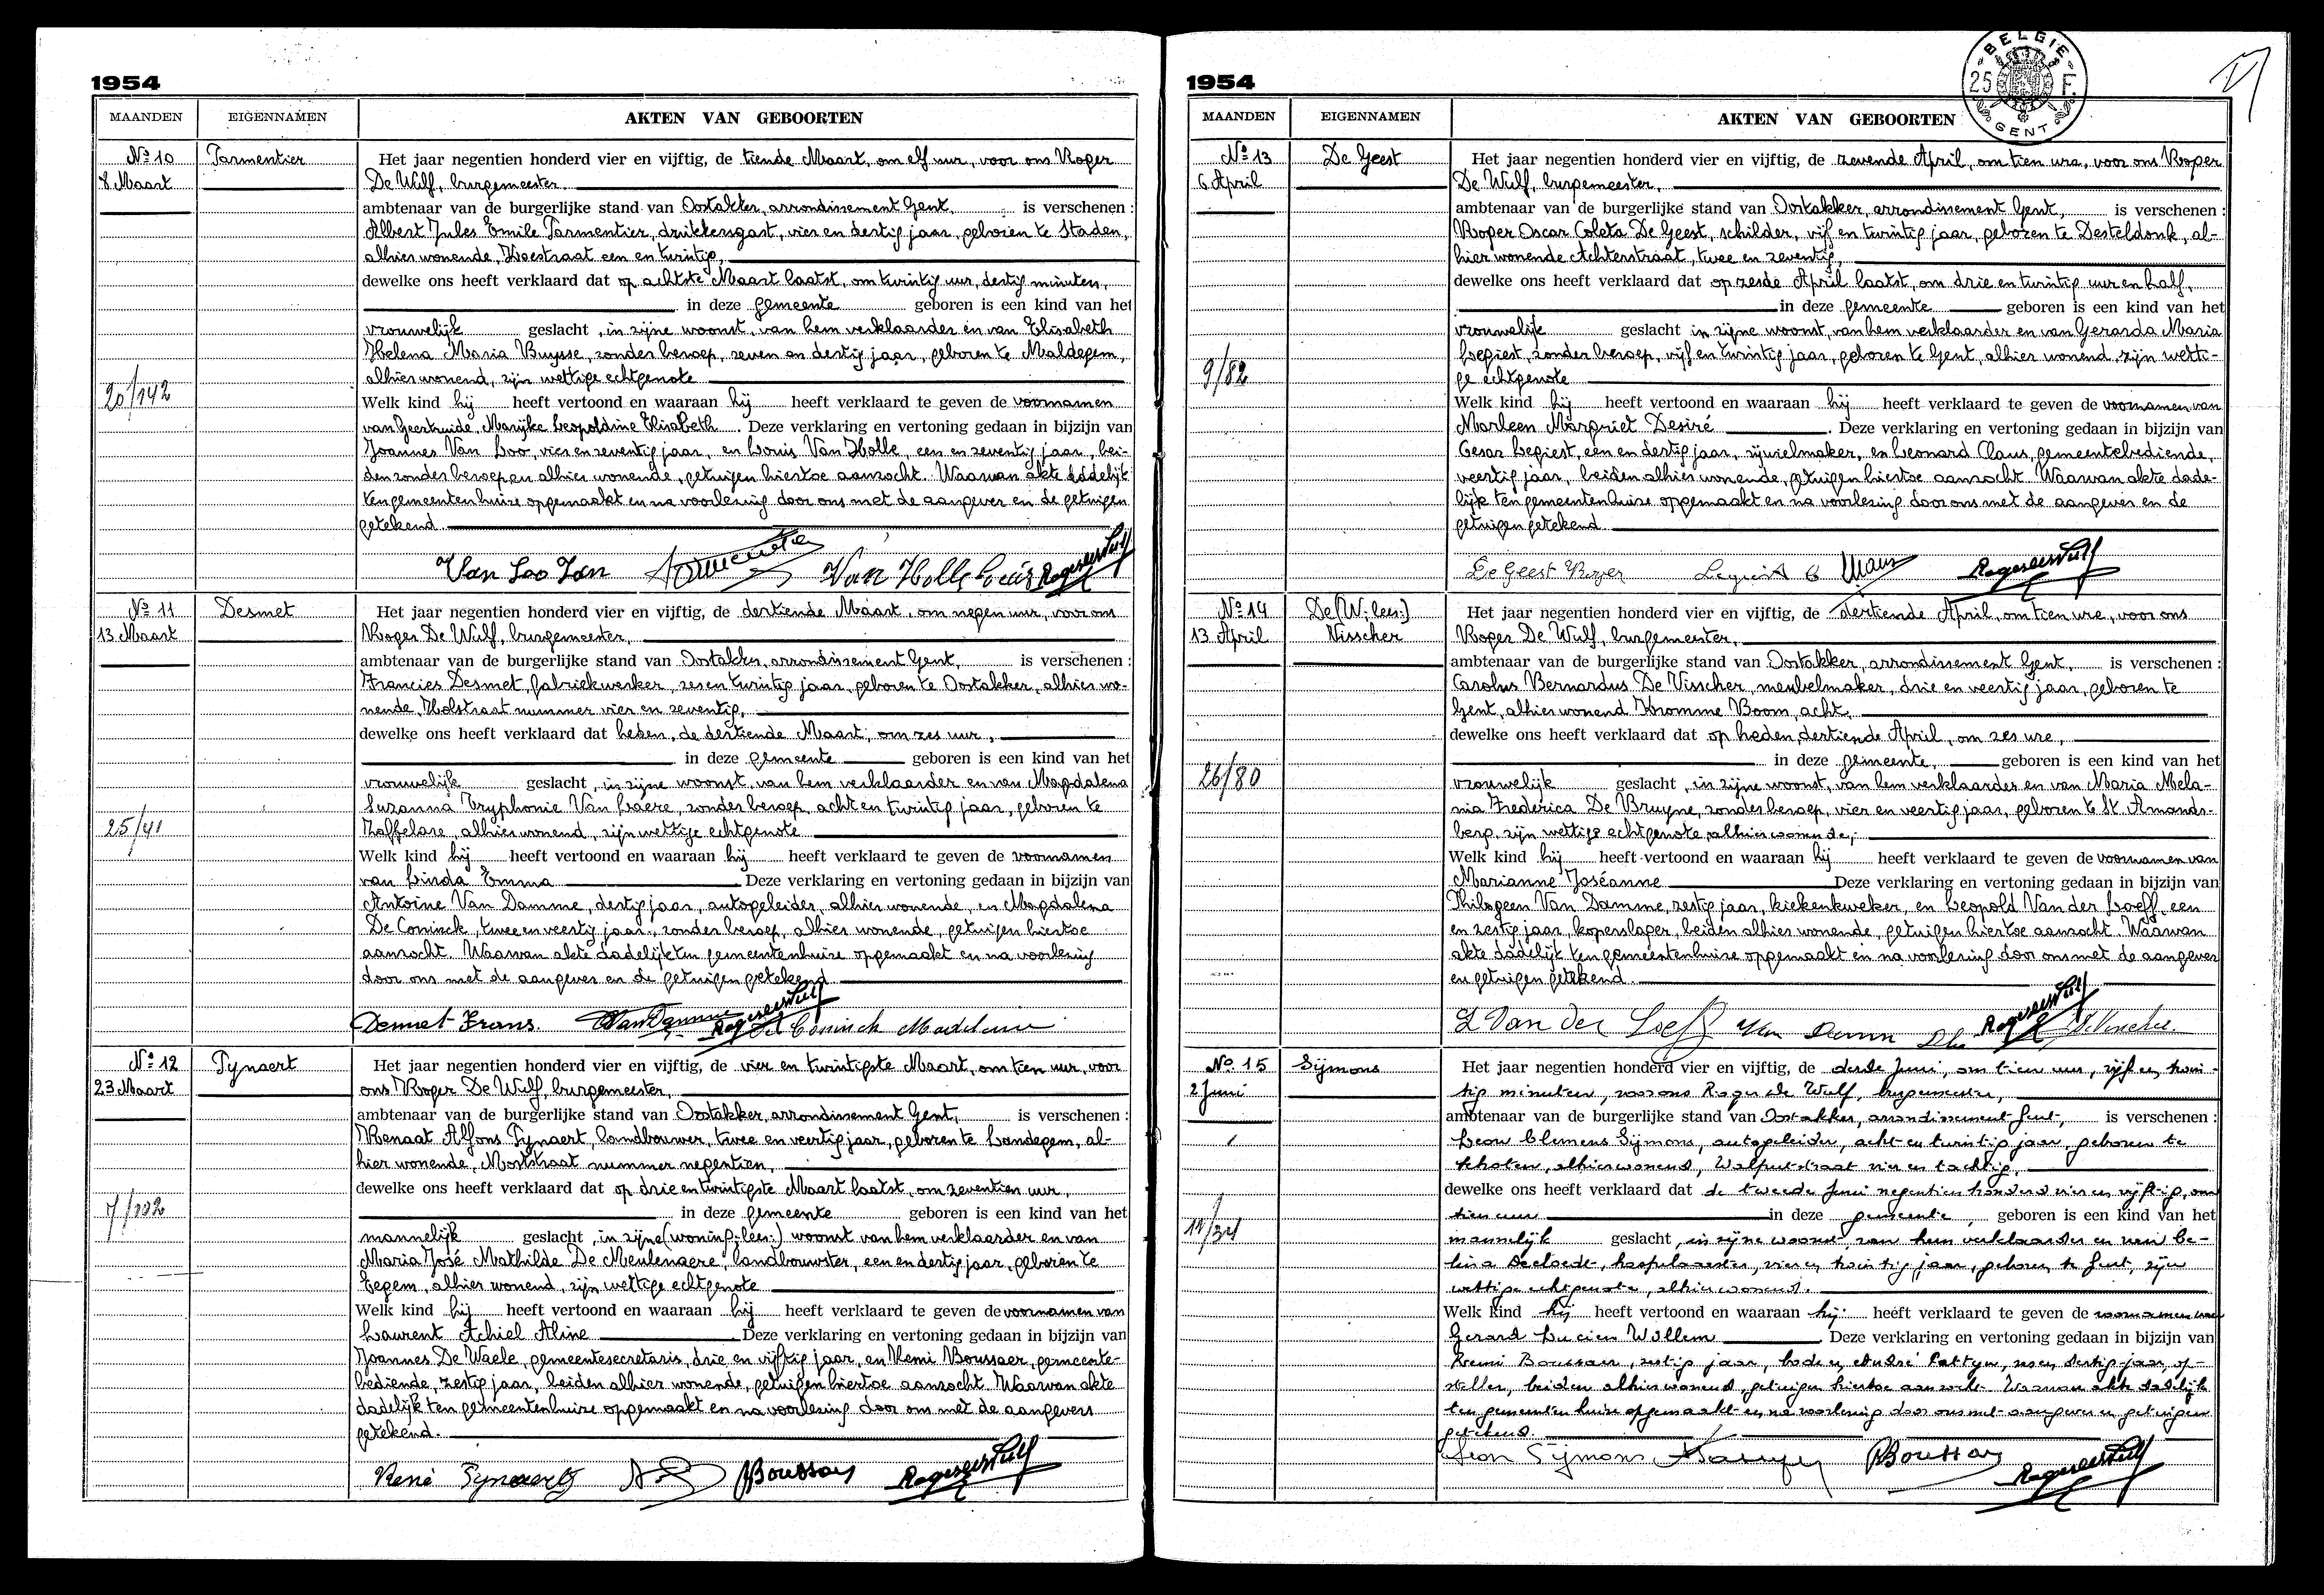 1954
MAANDEN EIGENNAMEN AKTEN VAN GEBOORTEN
No 10 Parmentier
8 Maart
20/142
Het jaar negentien honderd vier en vijftig, de tiende Maart, om elf uur, voor ons Roger
De Wulf, burgemeester.
ambtenaar van de burgerlijke stand van Oostakker, arrondissement Gent, is verschenen :
Albert Jules Emile Parmentier, drukkersgast, vier en dertig jaar, geboren te Staden,
alhier wonende, Hoestraat een en twintig,
dewelke ons heeft verklaard dat op achtste Maart laatst, om twintig uur, dertig minuten,
in deze gemeente geboren is een kind van het
vrouwelijk geslacht, in zijne woonst, van hem verklaarder en van Elisabeth
Helena Maria Buysse, zonder beroep, zeven en dertig jaar, geboren te Maldegem,
alhier wonend, zijn wettige echtgenote
Welk kind hij heeft vertoond en waaraan hij heeft verklaard te geven de voornamen
van Geertruide, Marijke Leopoldine Elisabeth. Deze verklaring en vertoning gedaan in bijzijn van
Joannes Van Loo, vier en zeventig jaar, en Louis Van Holle, een en zeventig jaar, bei-
den zonder beroep en alhier wonende, getuigen hiertoe aanzocht. Waarvan akte dadelijk
ten gemeentenhuize opgemaakt en na voorlezing door ons met de aangever en de getuigen
getekend.
Van Loo Jan Parmentier Van Holle Louis Roger De Wulf
No 11 Desmet
13 Maart
25/41
Het jaar negentien honderd vier en vijftig, de dertiende Maart, om negen uur, voor ons
Roger De Wulf, burgemeester,
ambtenaar van de burgerlijke stand van Oostakker, arrondissement Gent, is verschenen :
Francies Desmet, fabriekwerker, zes en twintig jaar, geboren te Oostakker, alhier wo-
nende, Holstraat nummer vier en zeventig,
dewelke ons heeft verklaard dat heden, de dertiende Maart, om zes uur,
in deze gemeente geboren is een kind van het
vrouwelijk geslacht, in zijne woonst, van hem verklaarder en van Magdalena
Suzanna Tryphonie Van Laere, zonder beroep, acht en twintig jaar, geboren te
Zaffelare, alhier wonend, zijn wettige echtgenote
Welk kind hij heeft vertoond en waaraan hij heeft verklaard te geven de voornamen
van Linda Emma Deze verklaring en vertoning gedaan in bijzijn van
Antoine Van Damme, dertig jaar, autogeleider, alhier wonende, en Magdalena
De Coninck, twee en veertig jaar, zonder beroep, alhier wonende, getuigen hiertoe
aanzocht. Waarvan akte dadelijk ten gemeentenhuize opgemaakt en na voorlezing
door ons met de aangever en de getuigen getekend
Desmet Frans. Van Damme Roger De Wulf De Coninck Madeleine
No 12 Pynaert
23 Maart
7/102
Het jaar negentien honderd vier en vijftig, de vier en twintigste Maart, om tien uur, voor
ons Roger De Wulf, burgemeester,
ambtenaar van de burgerlijke stand van Oostakker, arrondissement Gent, is verschenen :
Renaat Alfons Pynaert, landbouwer, twee en veertig jaar, geboren te Landegem, al-
hier wonende, Moststraat nummer negentien,
dewelke ons heeft verklaard dat op drie en twintigste Maart laatst, om zeventien uur,
in deze gemeente geboren is een kind van het
mannelijk geslacht, in zijne (woning: lees:) woonst van hem verklaarder en van
Maria José Mathilde De Meulenaere, landbouwster, een en dertig jaar, geboren te
Eegem, alhier wonend, zijn wettige echtgenote
Welk kind hij heeft vertoond en waaraan hij heeft verklaard te geven de voornamen van
Laurent Achiel Aline Deze verklaring en vertoning gedaan in bijzijn van
Joannes De Waele, gemeentesecretaris, drie en vijftig jaar, en Remi Boussaer, gemeente-
bediende, zestig jaar, beiden alhier wonende, getuigen hiertoe aanzocht. Waarvan akte
dadelijk ten gemeentenhuize opgemaakt en na voorlezing door ons met de aangevers
getekend.
René Pynaert RBoussaer Roger De Wulf
1954
BELGIE 25 F. GENT
MAANDEN EIGENNAMEN AKTEN VAN GEBOORTEN
No 13 De Geest
6 April
9/82
Het jaar negentien honderd vier en vijftig, de zevende April, om tien ure, voor ons Roger
De Wulf, burgemeester,
ambtenaar van de burgerlijke stand van Oostakker, arrondissement Gent, is verschenen :
Roger Oscar Coleta De Geest, schilder, vijf en twintig jaar, geboren te Desteldonk, al-
hier wonende Achterstraat, twee en zeventig,
dewelke ons heeft verklaard dat op zesde April laatst, om drie en twintig uur en half,
in deze gemeente geboren is een kind van het
vrouwelijk geslacht in zijne woonst, van hem verklaarder en van Gerarda Maria
Legiest, zonder beroep, vijf en twintig jaar, geboren te Gent, alhier wonend, zijn wetti-
ge echtgenote
Welk kind hij heeft vertoond en waaraan hij heeft verklaard te geven de voornamen van
Marleen Margriet Desiré. Deze verklaring en vertoning gedaan in bijzijn van
Cesar Legiest, een en dertig jaar, rijwielmaker, en Leonard Claus, gemeentebediende,
veertig jaar, beiden alhier wonende, getuigen hiertoe aanzocht. Waarvan akte dade-
lijk ten gemeentenhuize opgemaakt en na voorlezing door ons met de aangever en de
getuigen getekend
De Geest Roger Legiest C Claus Roger De Wulf
No 14 De (W: lees:)
13 April Visscher
26/80
Het jaar negentien honderd vier en vijftig, de dertiende April, om tien ure, voor ons
Roger De Wulf, burgemeester,
ambtenaar van de burgerlijke stand van Oostakker, arrondissement Gent, is verschenen :
Carolus Bernardus De Visscher, meubelmaker, drie en veertig jaar, geboren te
Gent, alhier wonend Kromme Boom, acht,
dewelke ons heeft verklaard dat op heden, dertiende April, om zes ure,
in deze gemeente, geboren is een kind van het
vrouwelijk geslacht, in zijne woonst, van hem verklaarder en van Maria Mela-
nia Frederica De Bruyne, zonder beroep, vier en veertig jaar, geboren te St. Amands-
berg, zijn wettige echtgenote, alhier wonende,
Welk kind hij heeft vertoond en waaraan hij heeft verklaard te geven de voornamen van
Marianne Joséanne Deze verklaring en vertoning gedaan in bijzijn van
Philogeen Van Damme, zestig jaar, kiekenkweker, en Leopold Van der Loeff, een
en zestig jaar, koperslager, beiden alhier wonende, getuigen hiertoe aanzocht. Waarvan
akte dadelijk ten gemeentenhuize opgemaakt en na voorlezing door ons met de aangever
en getuigen getekend
L Van der Loeff Van Damm Ph Roger De Wulf De Visscher
No 15 Sijmons
2 Juni
11/34
Het jaar negentien honderd vier en vijftig, de derde Juni, om tien uur, vijf en twin-
tig minuten, voor ons Roger De Wulf, burgemeester,
ambtenaar van de burgerlijke stand van Oostakker, arrondissement Gent, is verschenen :
Leon Clemens Sijmons, autogeleider, acht en twintig jaar, geboren te
Schoten, alhier wonend, Wolfputstraat vier en tachtig,
dewelke ons heeft verklaard dat de tweede Juni negentien honderd vier en vijftig, om
tien uur in deze gemeente, geboren is een kind van het
mannelijk geslacht, in zijne woonst, van hem verklaarder en van Ce-
lina Decloedt, haspelaarster, vier en twintig jaar, geboren te Gent, zijn
wettige echtgenote, alhier wonend.
Welk kind hij heeft vertoond en waaraan hij heeft verklaard te geven de voornamen van
Gerard Lucien Willem Deze verklaring en vertoning gedaan in bijzijn van
Remi Boussaer, zestig jaar, bode en André Pattyn, zes en dertig jaar, op-
steller, beiden alhier wonend, getuigen hiertoe aanzocht. Waarvan akte dadelijk
ten gemeentenhuize opgemaakt en na voorlezing door ons met aangever en getuigen
getekend.
Leon Sijmons RBoussaer Roger De Wulf